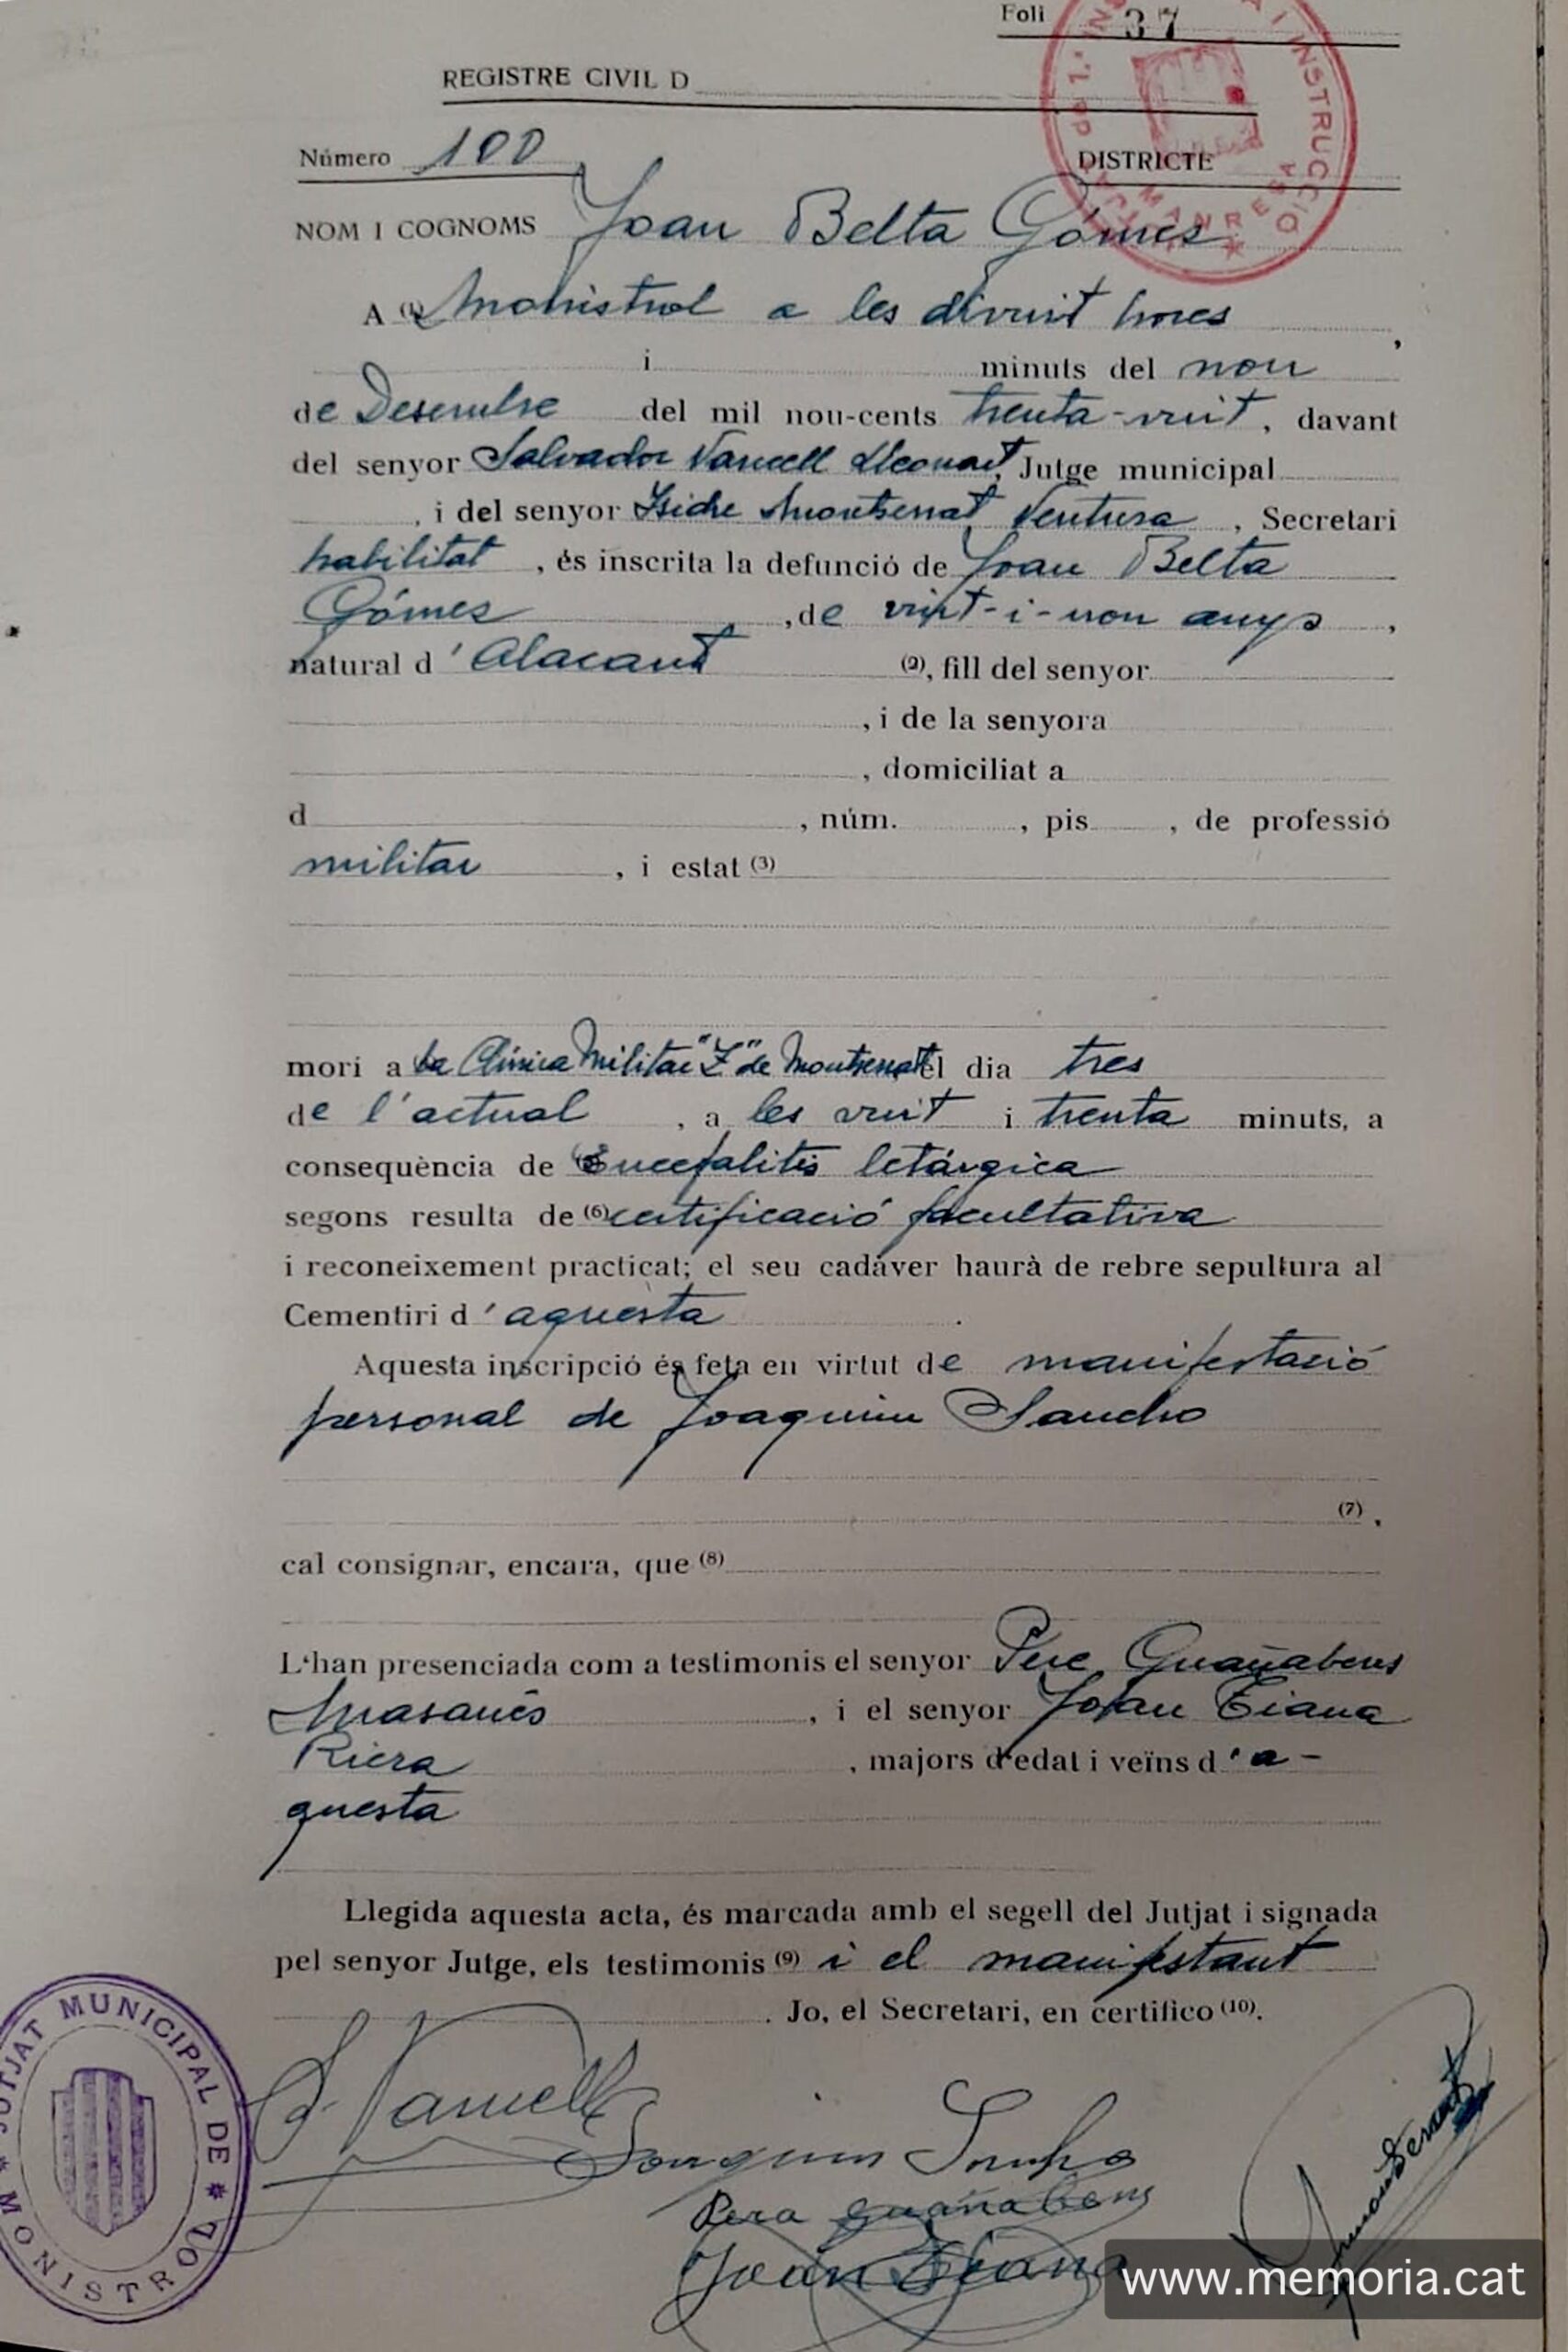 Foli 37
REGISTRE CIVIL D
Número 100
DISTRICTE
NOM I COGNOMS Joan Belta Gómes
A (1) Monistrol a les divuit hores,
i minuts del nou
de Desembre del mil nou-cents trenta-vuit, davant
del senyor Salvador Vancell Lleonart, Jutge municipal
, i del senyor Isidre Montserrat Ventura, Secretari
habilitat, és inscrita la defunció de Joan Belta
Gómes, de vint-i-nou anys,
natural d'Alacant (2), fill del senyor
, i de la senyora
, domiciliat a
d , núm. , pis , de professió
militar, i estat (3)
morí a la Clínica Militar "Z" de Montserrat el dia tres
de l'actual, a les vuit i trenta minuts, a
conseqüència de Encefalitis letárgica
segons resulta de (6) certificació facultativa
i reconeixement practicat; el seu cadàver haurà de rebre sepultura al
Cementiri d'aquesta.
Aquesta inscripció és feta en virtut de manifestació
personal de Joaquim Sancho
(7).
cal consignar, encara, que (8)
L'han presenciada com a testimonis el senyor Pere Guañabens
Masanés, i el senyor Joan Tiana
Riera, majors d'edat i veïns d'a-
questa
Llegida aquesta acta, és marcada amb el segell del Jutjat i signada
pel senyor Jutge, els testimonis (9) i el manifestant
. Jo, el Secretari, en certifico (10).
JUTJAT MUNICIPAL DE * MONISTROL *
S. Vancell
Joaquim Sancho
Pera Guañabens
Joan Tiana
www.memoria.cat